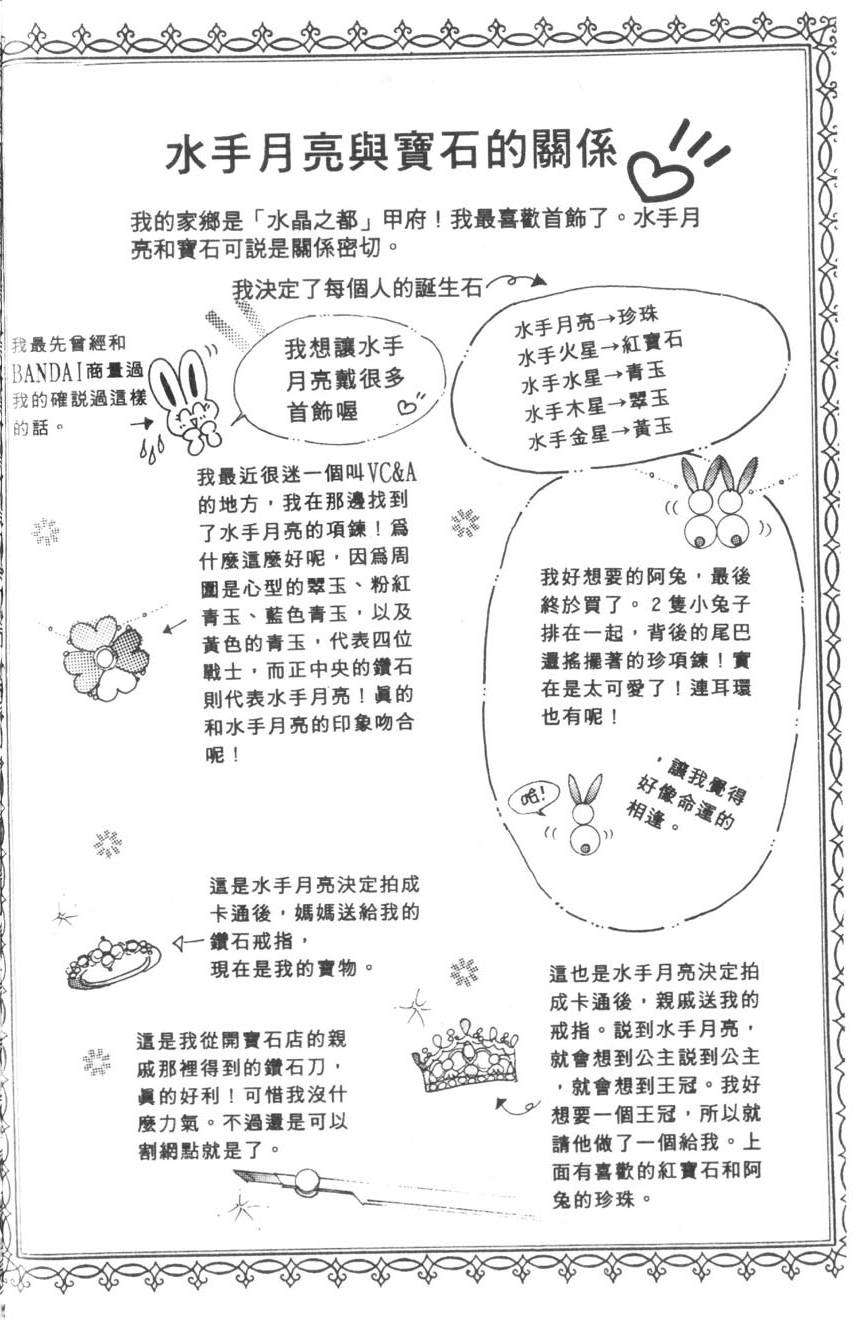 水手月亮與寶石的關係
我的家鄉是「水晶之都」甲府！我最喜歡首飾了。水手月
亮和寶石可説是關係密切。
我決定了每個人的誕生石
水手月亮→珍珠
水手火星→紅寶石
水手水星→青玉
水手木星→翠玉
水手金星→黃玉
我想讓水手
月亮戴很多
首飾喔
我最先曾經和
BANDAI商量過
我的確説過這樣
的話。
我最近很迷一個叫VC&A
的地方，我在那邊找到
了水手月亮的項鍊！爲
什麼這麼好呢，因爲周
圍是心型的翠玉、粉紅
青玉、藍色青玉，以及
黃色的青玉，代表四位
戰士，而正中央的鑽石
則代表水手月亮！眞的
和水手月亮的印象吻合
呢！
我好想要的阿兔，最後
終於買了。2隻小兔子
排在一起，背後的尾巴
還搖擺著的珍項鍊！實
在是太可愛了！連耳環
也有呢！
哈！
，讓我覺得
好像命運的
相逢。
這是水手月亮決定拍成
卡通後，媽媽送給我的
鑽石戒指，
現在是我的寶物。
這是我從開寶石店的親
戚那裡得到的鑽石刀，
眞的好利！可惜我沒什
麼力氣。不過還是可以
割網點就是了。
這也是水手月亮決定拍
成卡通後，親戚送我的
戒指。説到水手月亮，
就會想到公主説到公主
，就會想到王冠。我好
想要一個王冠，所以就
請他做了一個給我。上
面有喜歡的紅寶石和阿
兔的珍珠。